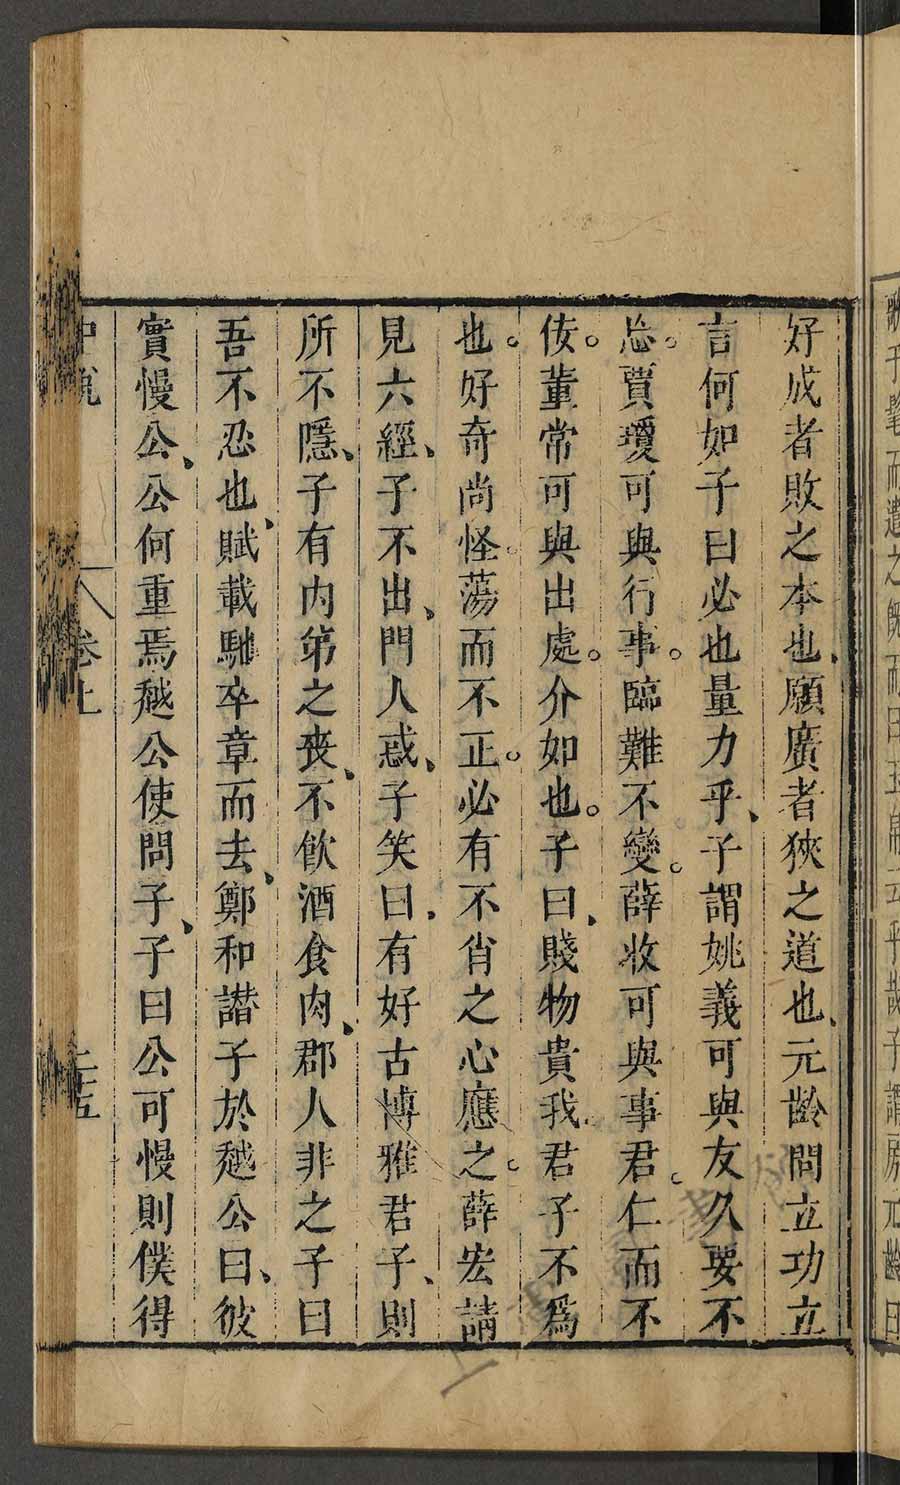 好成者敗之本也、願廣者狹之道也、元齡問立功立
言何如子曰必也量力乎、子謂姚義可與友久要不
忘。賈瓊可與行事。臨難不變。薛收可與事君。仁而不
佞。董常可與出處。介如也。子曰、賤物貴我、君子不爲
也。好奇尚怪。蕩而不正。必有不肖之心應之。薛宏請
見六經、子不出、門人惑、子笑曰、有好古博雅君子、則
所不隱、子有內弟之喪、不飲酒食肉、郡人非之子曰
吾不忍也、賦載馳卒章而去、鄭和譖子於越公曰、彼
實慢公、公何重焉越公使問子、子曰公可慢則僕得
中說
卷上